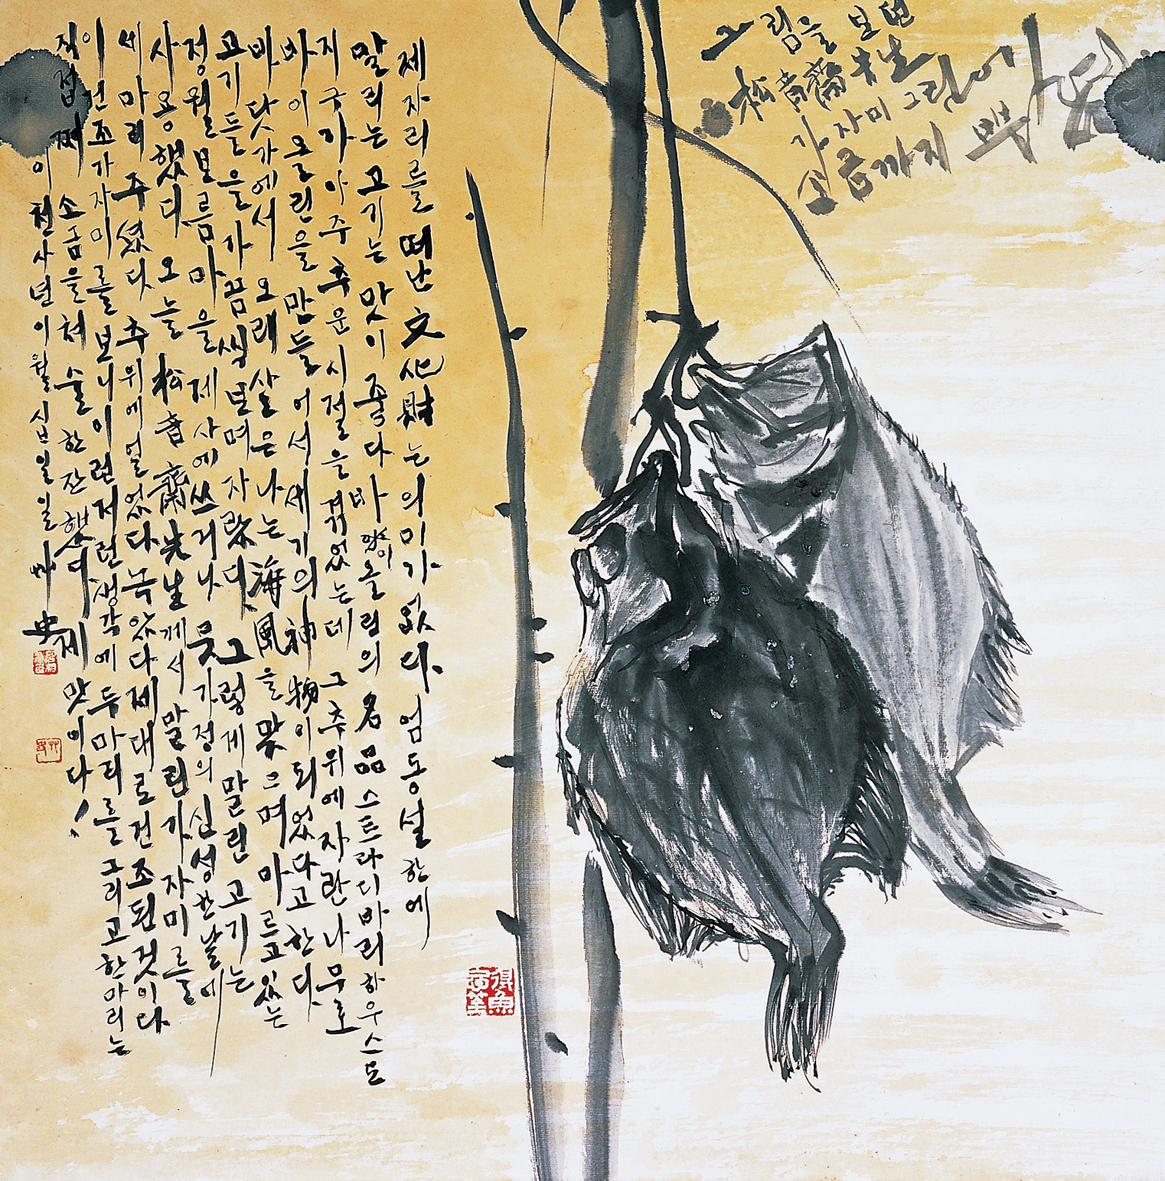 그림을 보면
松音齋先生
가자미 그린이
소금까지
제자리를 떠난 文化財는 의미가 없다. 엄동설한에
말리는 고기는 맛이 좋다 바이올린의 名品 스트라디바리하우스도
지구가 아주 추운 시절을 겪었는데 그 추위에 자란 나무로
바이올린을 만들어서 세기의 神物이 되었다고 한다
바닷가에서 오래 살은 나는 海風을 맞으며 마르고 있는
고기들을 가끔씩 보며 자랐다. 그렇게 말린 고기는
정월보름 마을 제사에 쓰거나 뭇가정의 신성한 날에
사용했다 오늘 松音齋先生께서 말린 가자미를
세마리 주셨다 추위에 얼었다 녹았다 제대로 건조된 것이다
이 건조가자미를 보니 이런저런 생각에 두마리를 그리고 한마리는
직접 쪄 소금을 쳐 술 한잔 했다 제 맛이다!
이천사년 이월